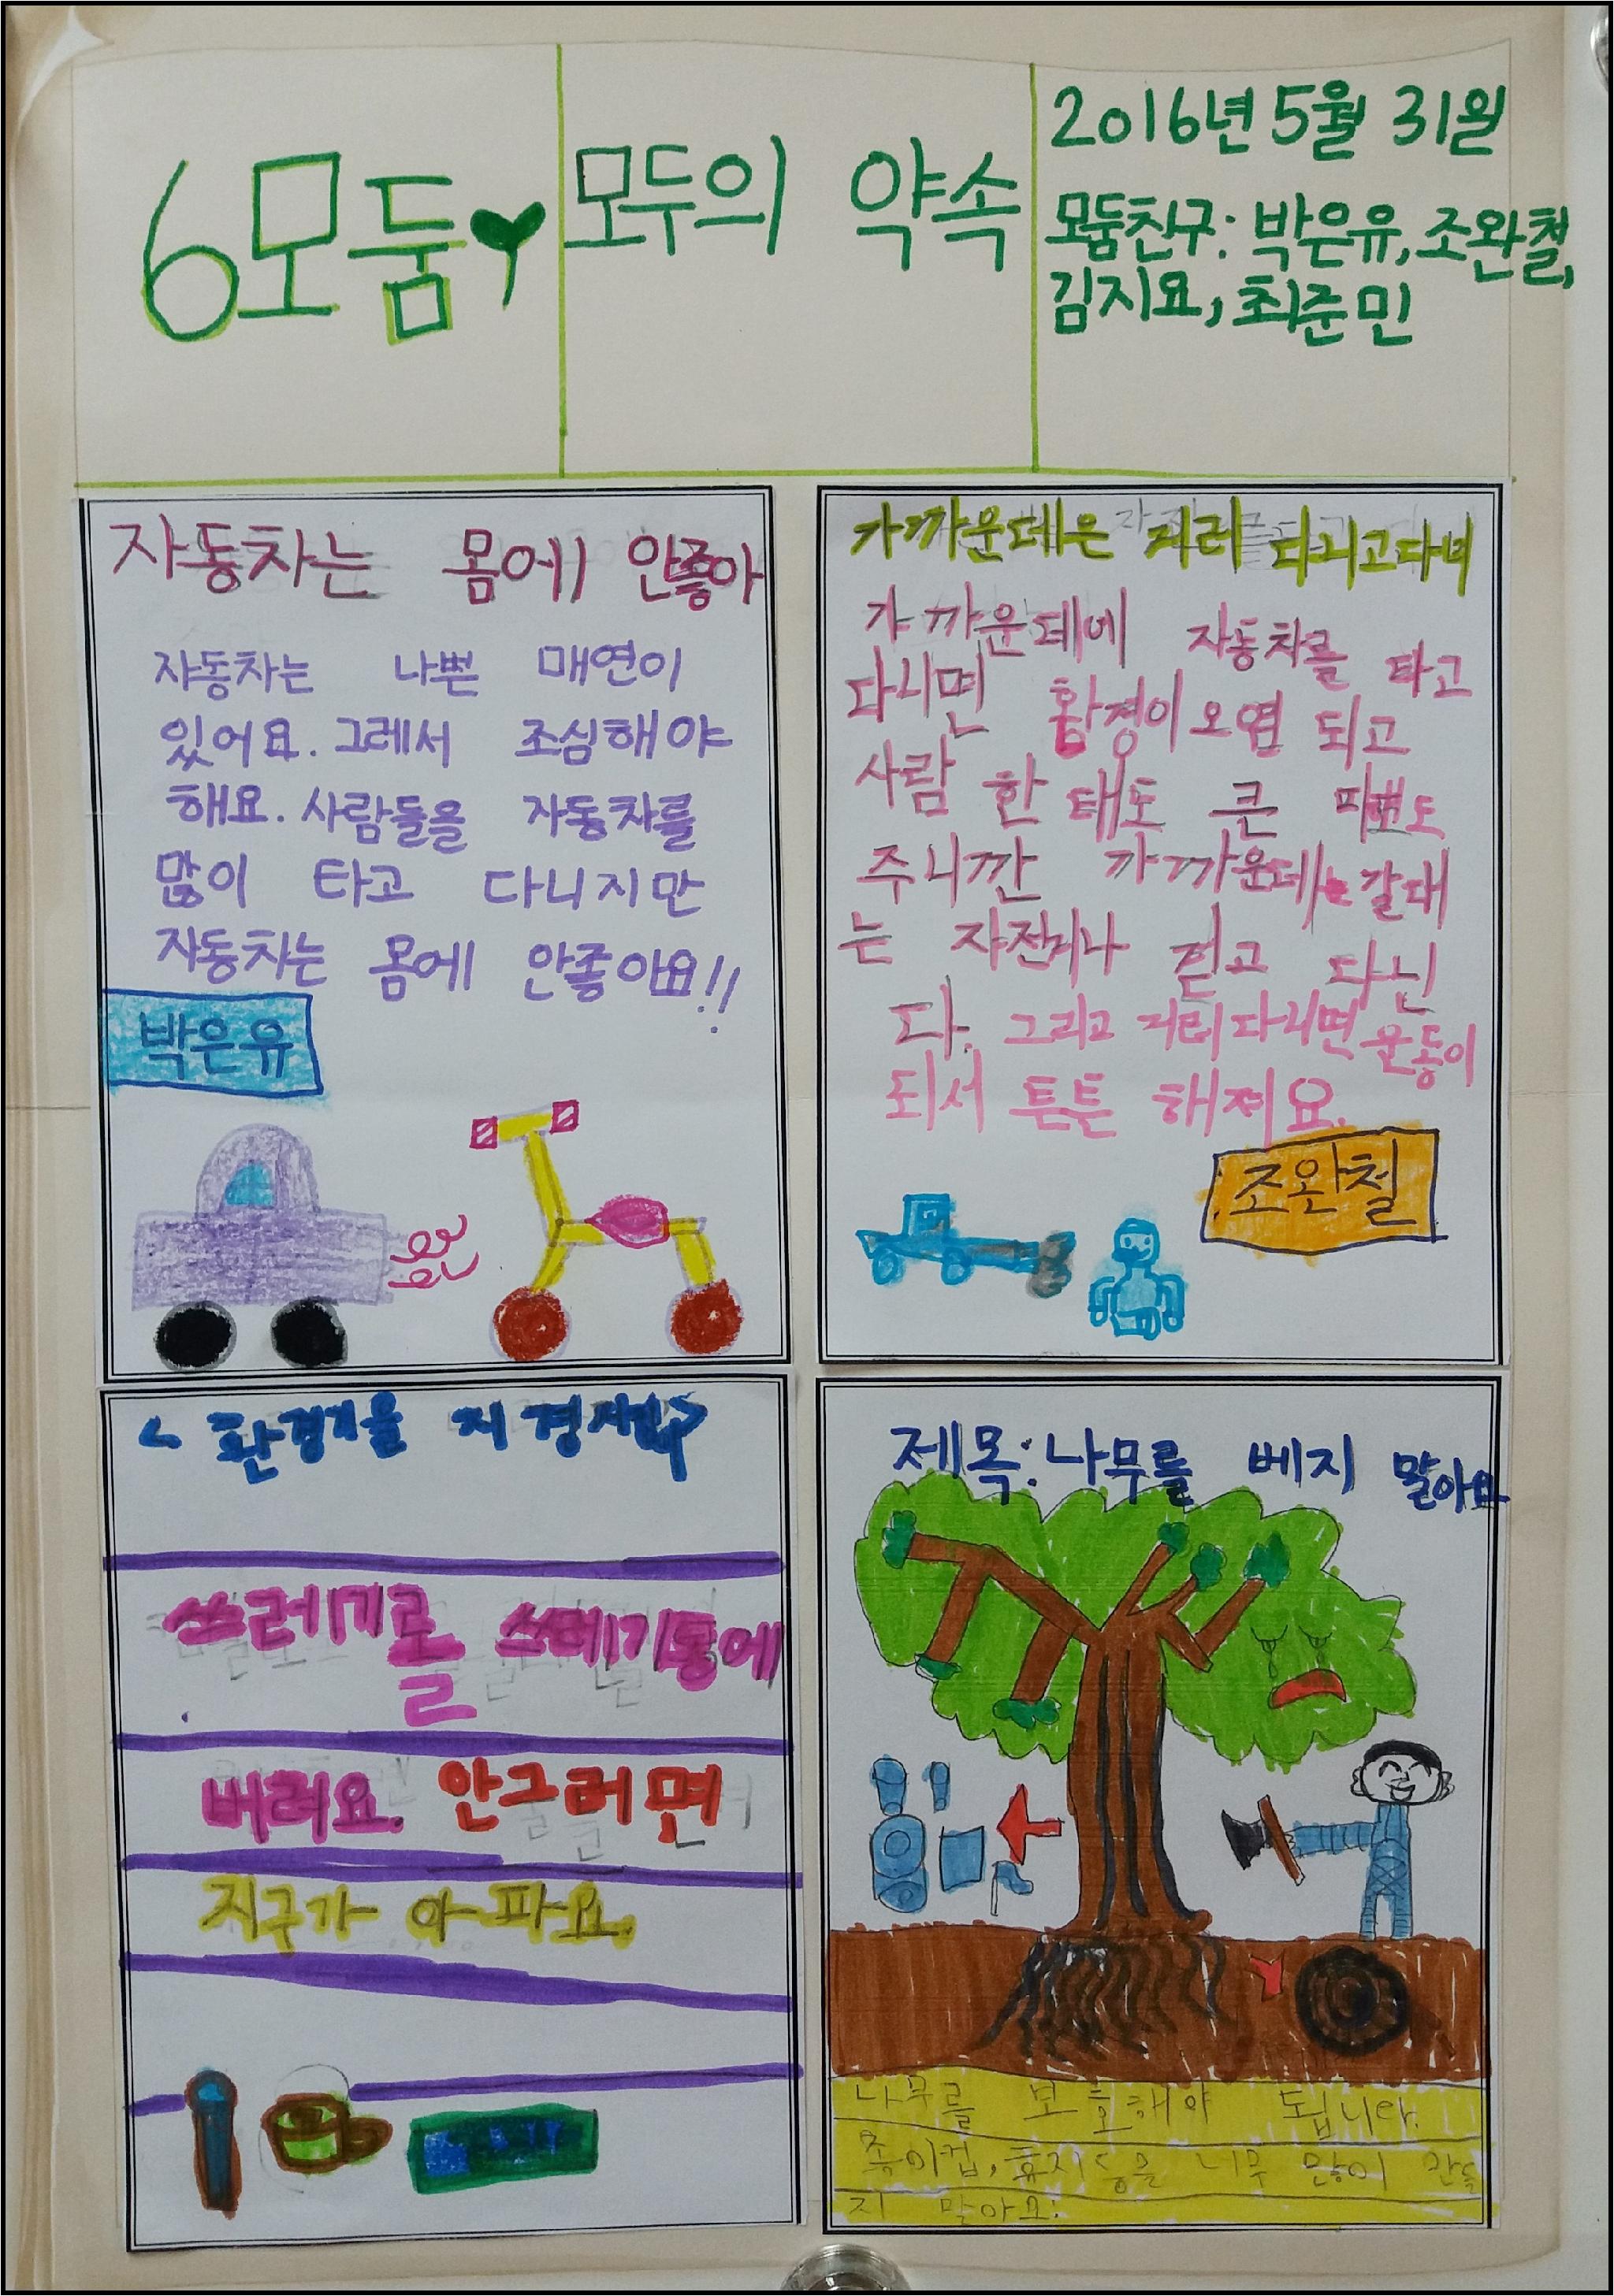 6모둠
모두의 약속
2016년 5월 31일
모둠친구: 박은유, 조완철,
김지요, 최준민
자동차는 몸에 안좋아
자동차는 나쁜 매연이
있어요. 그레서 조심해야
해요. 사람들을 자동차를
많이 타고 다니지만
자동차는 몸에 안좋아요!!
박은유
가까운데은
가까운데에 자동차를 타고
다니면 환경이 오염 되고
사람 한태도 큰 도
주니깐 가까운데는 갈때
는 걷고 다닌
다. 그리고 운동이
되서 튼튼 해져요.
조완철
쓰레기를
버려요. 안그러면
지구가 아파요.
제목: 나무를 베지 말아요
나무를 보호해야 됩니다.
종이컵, 휴지 등을 너무 많이
지 말아요.